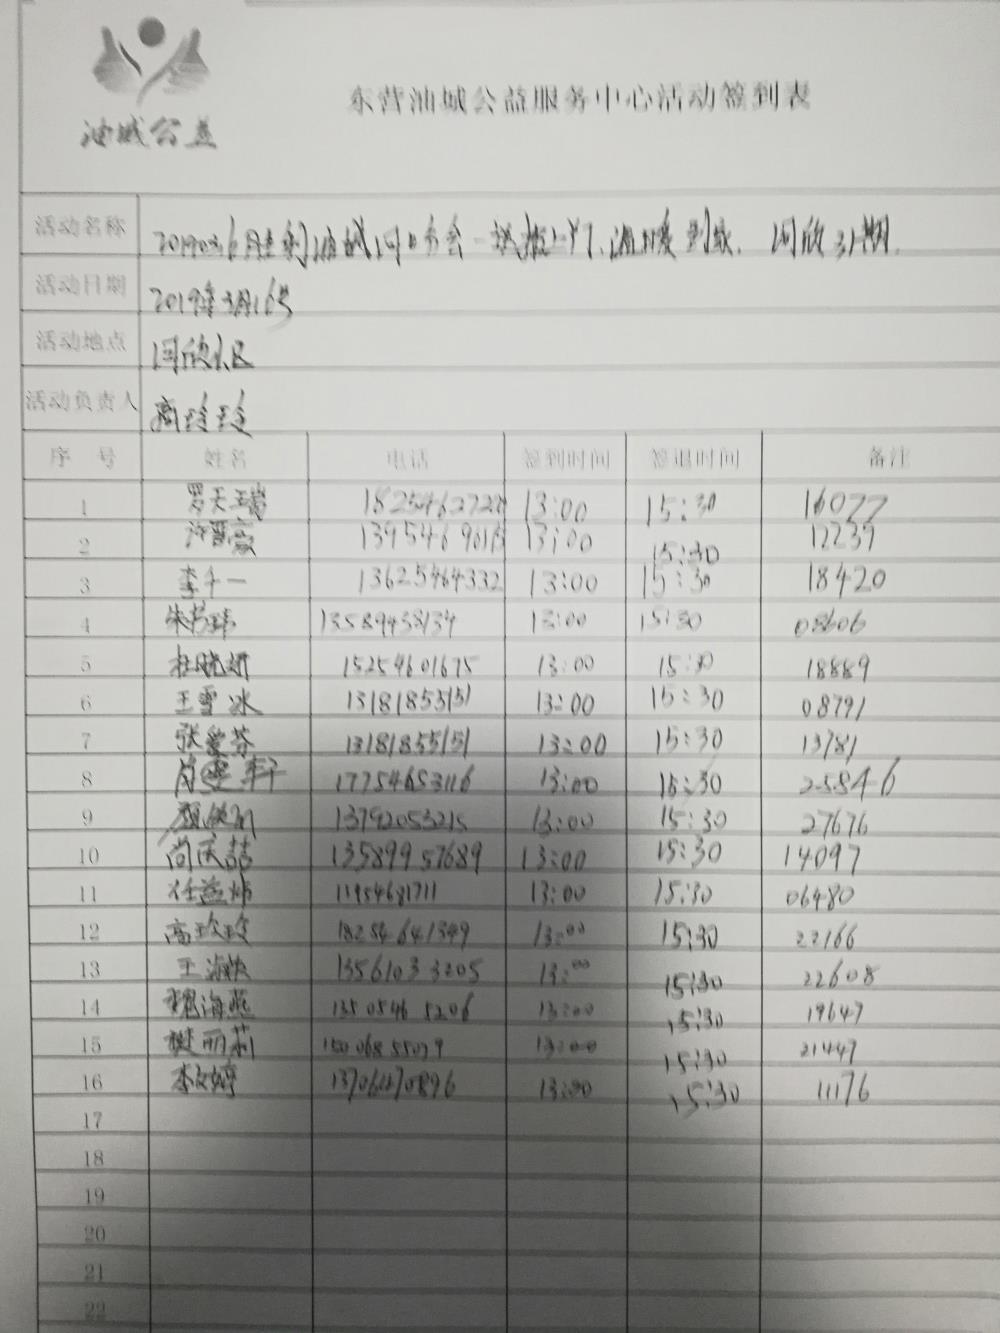 油城公益
东营油城公益服务中心活动签到表
活动名称 20190316 胜利油城 日 分会 送 上门、温暖到 同欣31期.
活动日期 2019年3月16号
活动地点 同欣小区
活动负责人 高玲玲
序号 姓名 电话 签到时间 签退时间 备注
1 罗天瑞 13:00 15:30 16077
2 许晋豪 13:00 15:30 12239
3 李千一 13625464332 13:00 15:30 18420
4 朱书玮 13589438134 13:00 15:30 08606
5 杜晓妍 15254601675 13:00 15:30 18889
6 王雪冰 13181855151 13:00 15:30 08791
7 张爱芬 13181855151 13:00 15:30 13781
8 肖 轩 17754653116 13:00 15:30 25846
9 13792053215 13:00 15:30 27676
10 尚庆喆 13589957689 13:00 15:30 14097
11 任益炜 13:00 15:30 06480
12 高玲玲 18254641349 13:00 15:30 22166
13 王 13561033205 13:00 15:30 22608
14 魏海燕 13505465206 13:00 15:30 19647
15 樊丽莉 13:00 15:30 21447
16 李文婷 13:00 15:30 11176
17
18
19
20
21
22